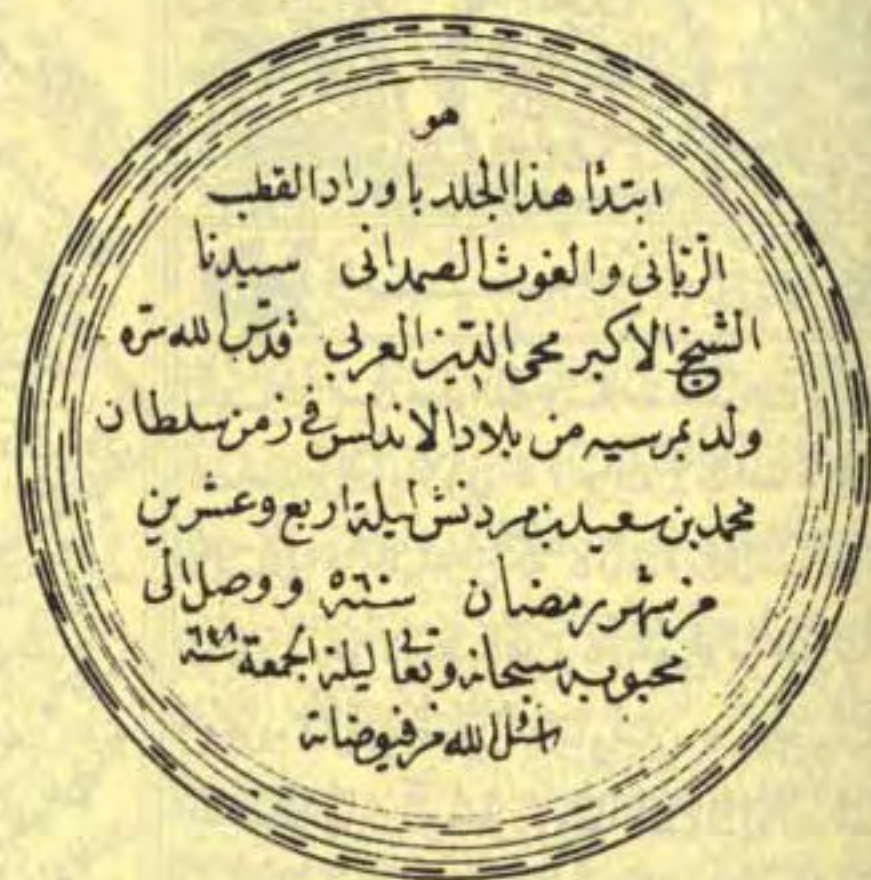 هو
ابتدأ هذا المجلد باوراد القطب
الربانى والغوث الصمدانى سيدنا
الشيخ الاكبر محى الدين العربى قدس الله سره
ولد بمرسيه من بلاد الاندلس فى زمن سلطان
محمد بن سعيد بن مردنش ليلة اربع وعشرين
من شهر رمضان سنة ٥٦٠ ووصل الى
محبوبه سبحانه وتعالى ليلة الجمعة سنة
الله من فيوضاته